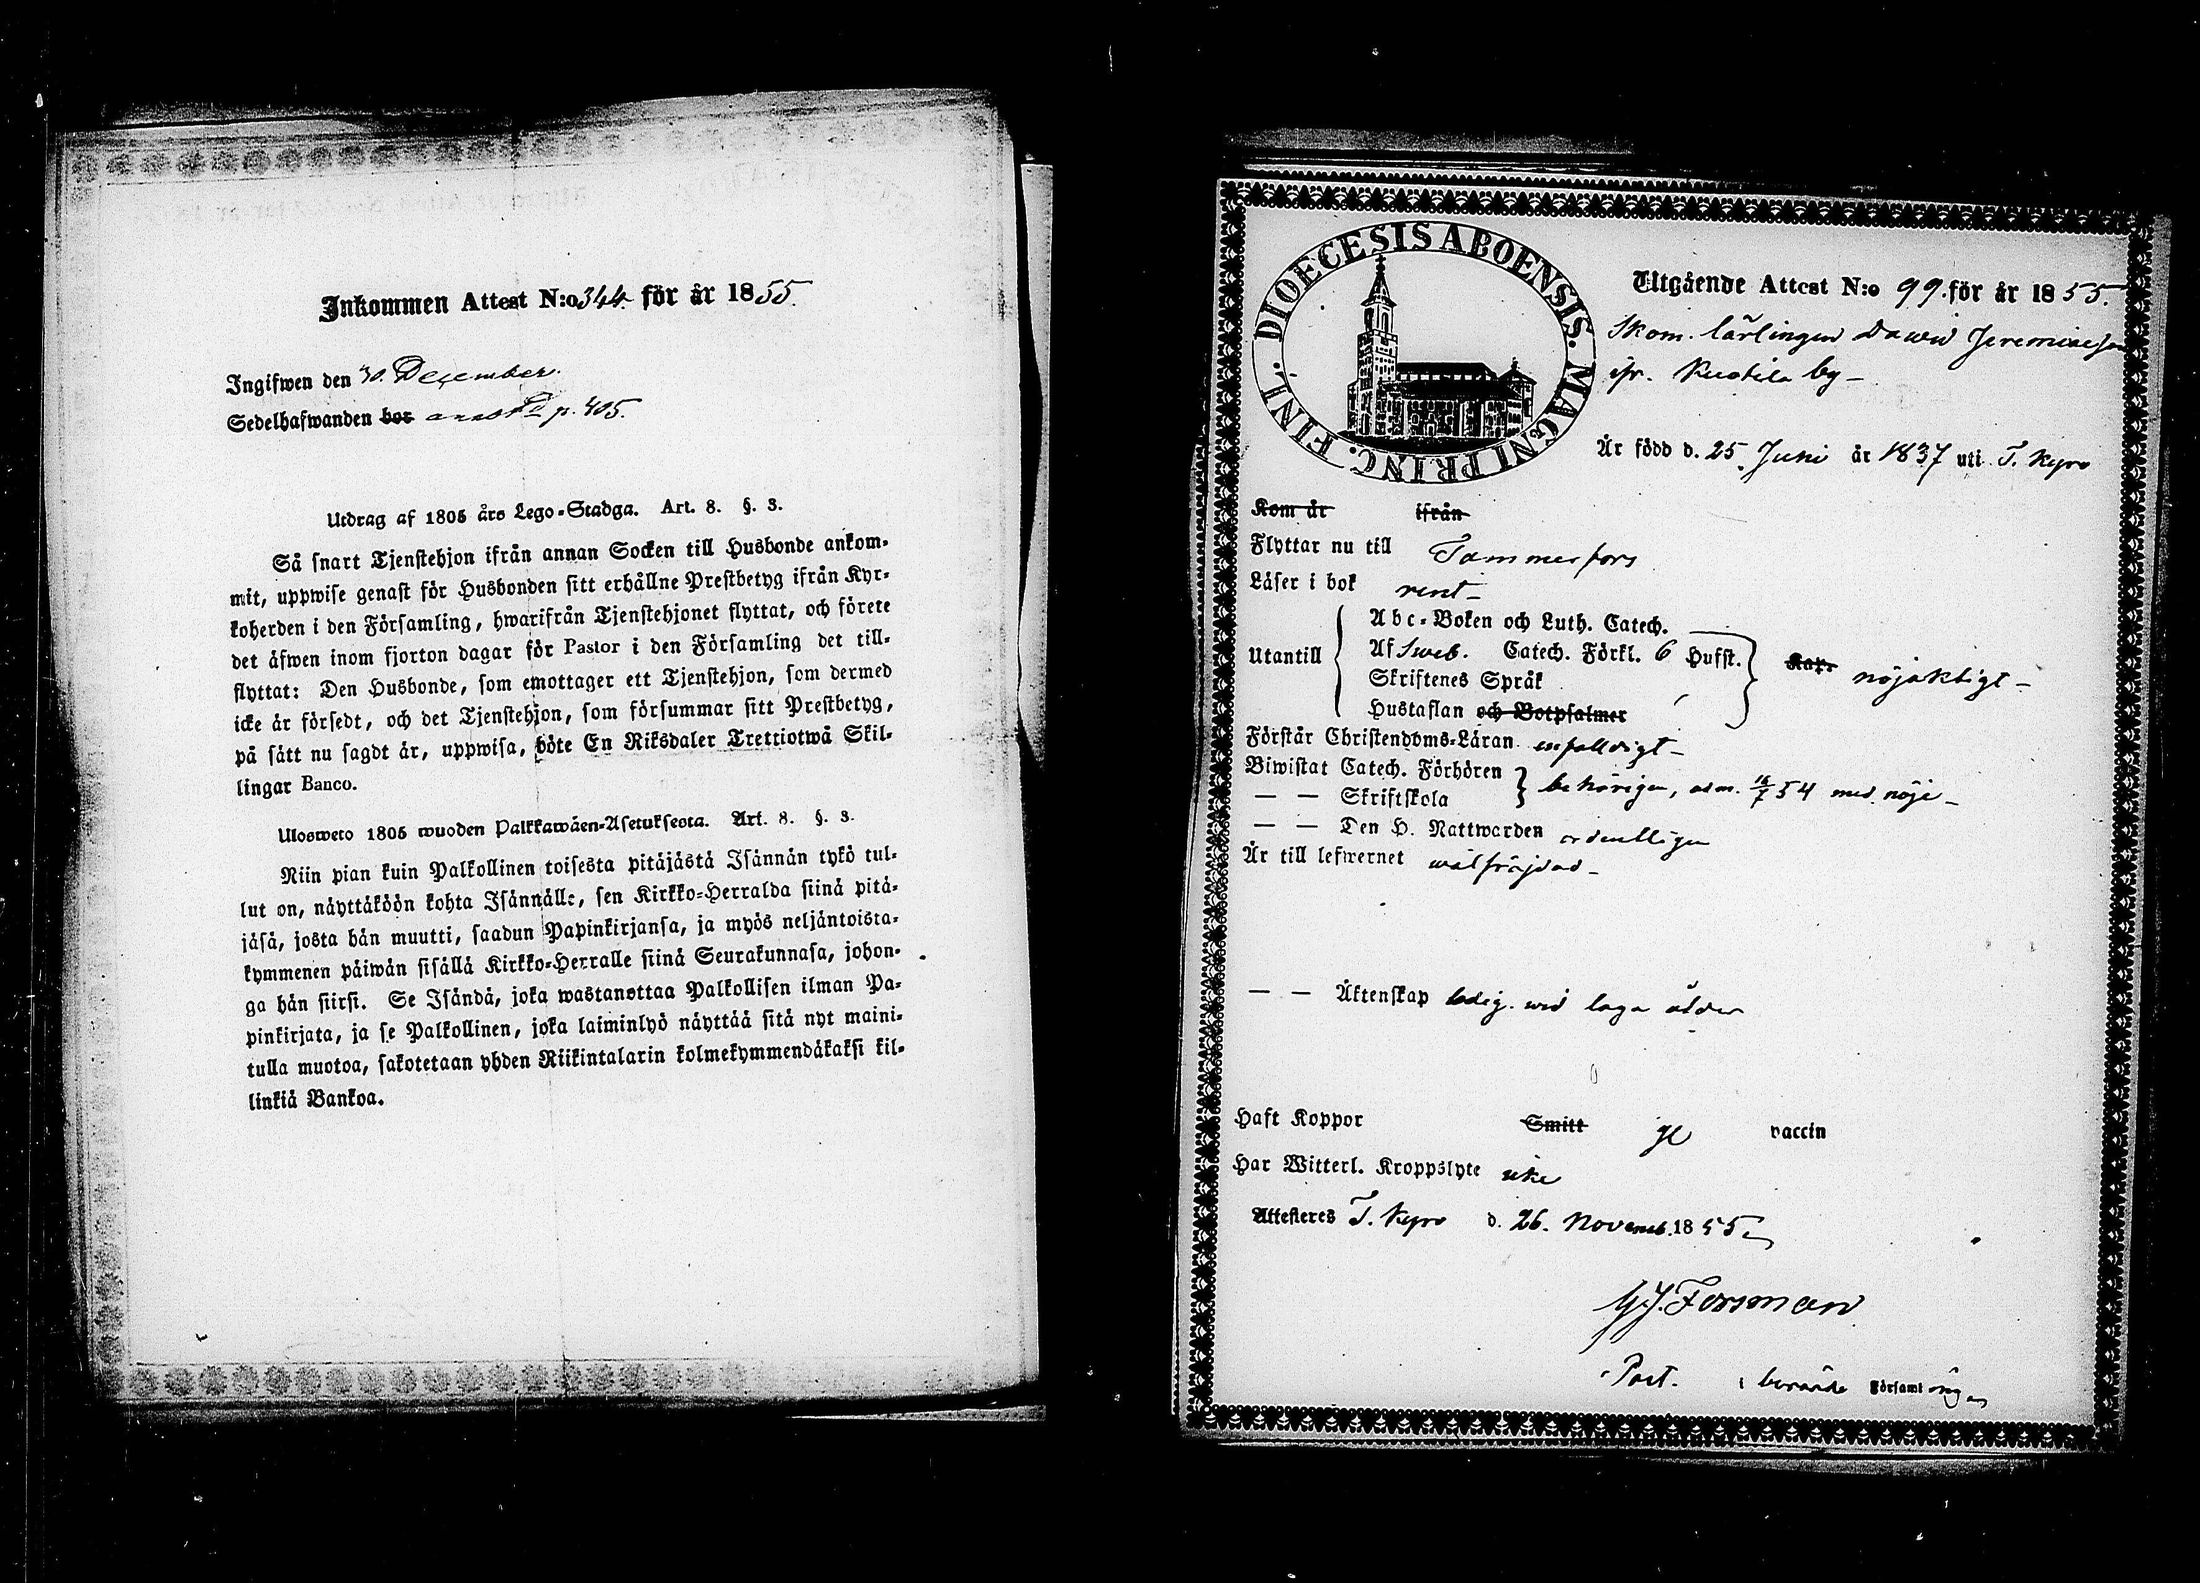 Inkommen Attest N:o 344 för år 1855.
Ingifwen den 30. December.
Sedelhafwanden bor p. 405.
Utdrag af 1805 års Lego-Stadga. Art. 8. §. 3.
Så snart Tjenstehjon ifrån annan Socken till Husbonde ankom-
mit, uppwise genast för Husbonden sitt erhållne Prestbetyg ifrån Kyr-
koherden i den Församling, hwarifrån Tjenstehjonet flyttat, och förete
det äfwen inom fjorton dagar för Pastor i den Församling det till-
flyttat: Den Husbonde, som emottager ett Tjenstehjon, som dermed
icke är försedt, och det Tjenstehjon, som försummar sitt Prestbetyg,
på sätt nu sagdt är, uppwisa, böte En Riksdaler Trettiotwå Skil-
lingar Banco.
Ulosweto 1805 wuoden Palkkawäen-Asetuksesta. Art. 8. §. 3.
Niin pian kuin Palkollinen toisesta pitäjästä Isännän tykö tul-
lut on, näyttäköön kohta Isännälle, sen Kirkko-Herralda siinä pitä-
jäsä, josta hän muutti, saadun Papinkirjansa, ja myös neljäntoista-
kymmenen päiwän sisällä Kirkko-Herralle siinä Seurakunnasa, johon-
ga hän siirsi. Se Isändä, joka wastanottaa Palkollisen ilman Pa-
pinkirjata, ja se Palkollinen, joka laiminlyö näyttää sitä nyt maini-
tulla muotoa, sakotetaan yhden Riikintalarin kolmekymmendäkaksi kil-
linkiä Bankoa.
DIOECESIS ABOENSIS. MAGNI PRINC. FINL.
Utgående Attest N:o 99. för år 1855.
Skom. lärlingen Dawid Jeremiaeson
ifr. Kustila by -
Är född d. 25. Juni år 1837 uti T. Kyro
Kom år ifrån
Flyttar nu till Tammerfors
Läser i bok rent -
Utantill
Abc-Boken och Luth. Catech.
Af Sweb. Catech. Förkl. 6 Hufst.
Skriftenes Språk
Hustaflan och Botpsalmer
Kap. nöjaktigt -
Förstår Christendoms-Läran enfalldigt -
Biwistat Catech. Förhören
— — Skriftskola
behörigen, adm. 16/7 54 med nöje -
— — Den H. Nattwarden ordentligen
Är till lefwernet wälfräjdad -
— — Äktenskap ledig. wid laga ålder
Haft Koppor Smitt ge vaccin
Har Witterl. Kroppslyte icke
Attesteres T. Kyro d. 26. Novemb. 1855
G. J. Forsman
Past. i berörde Församlingen